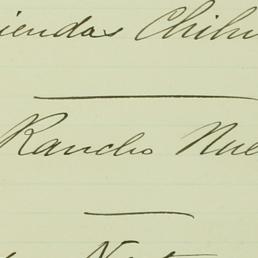 iendas Chihu
Rancho Nue